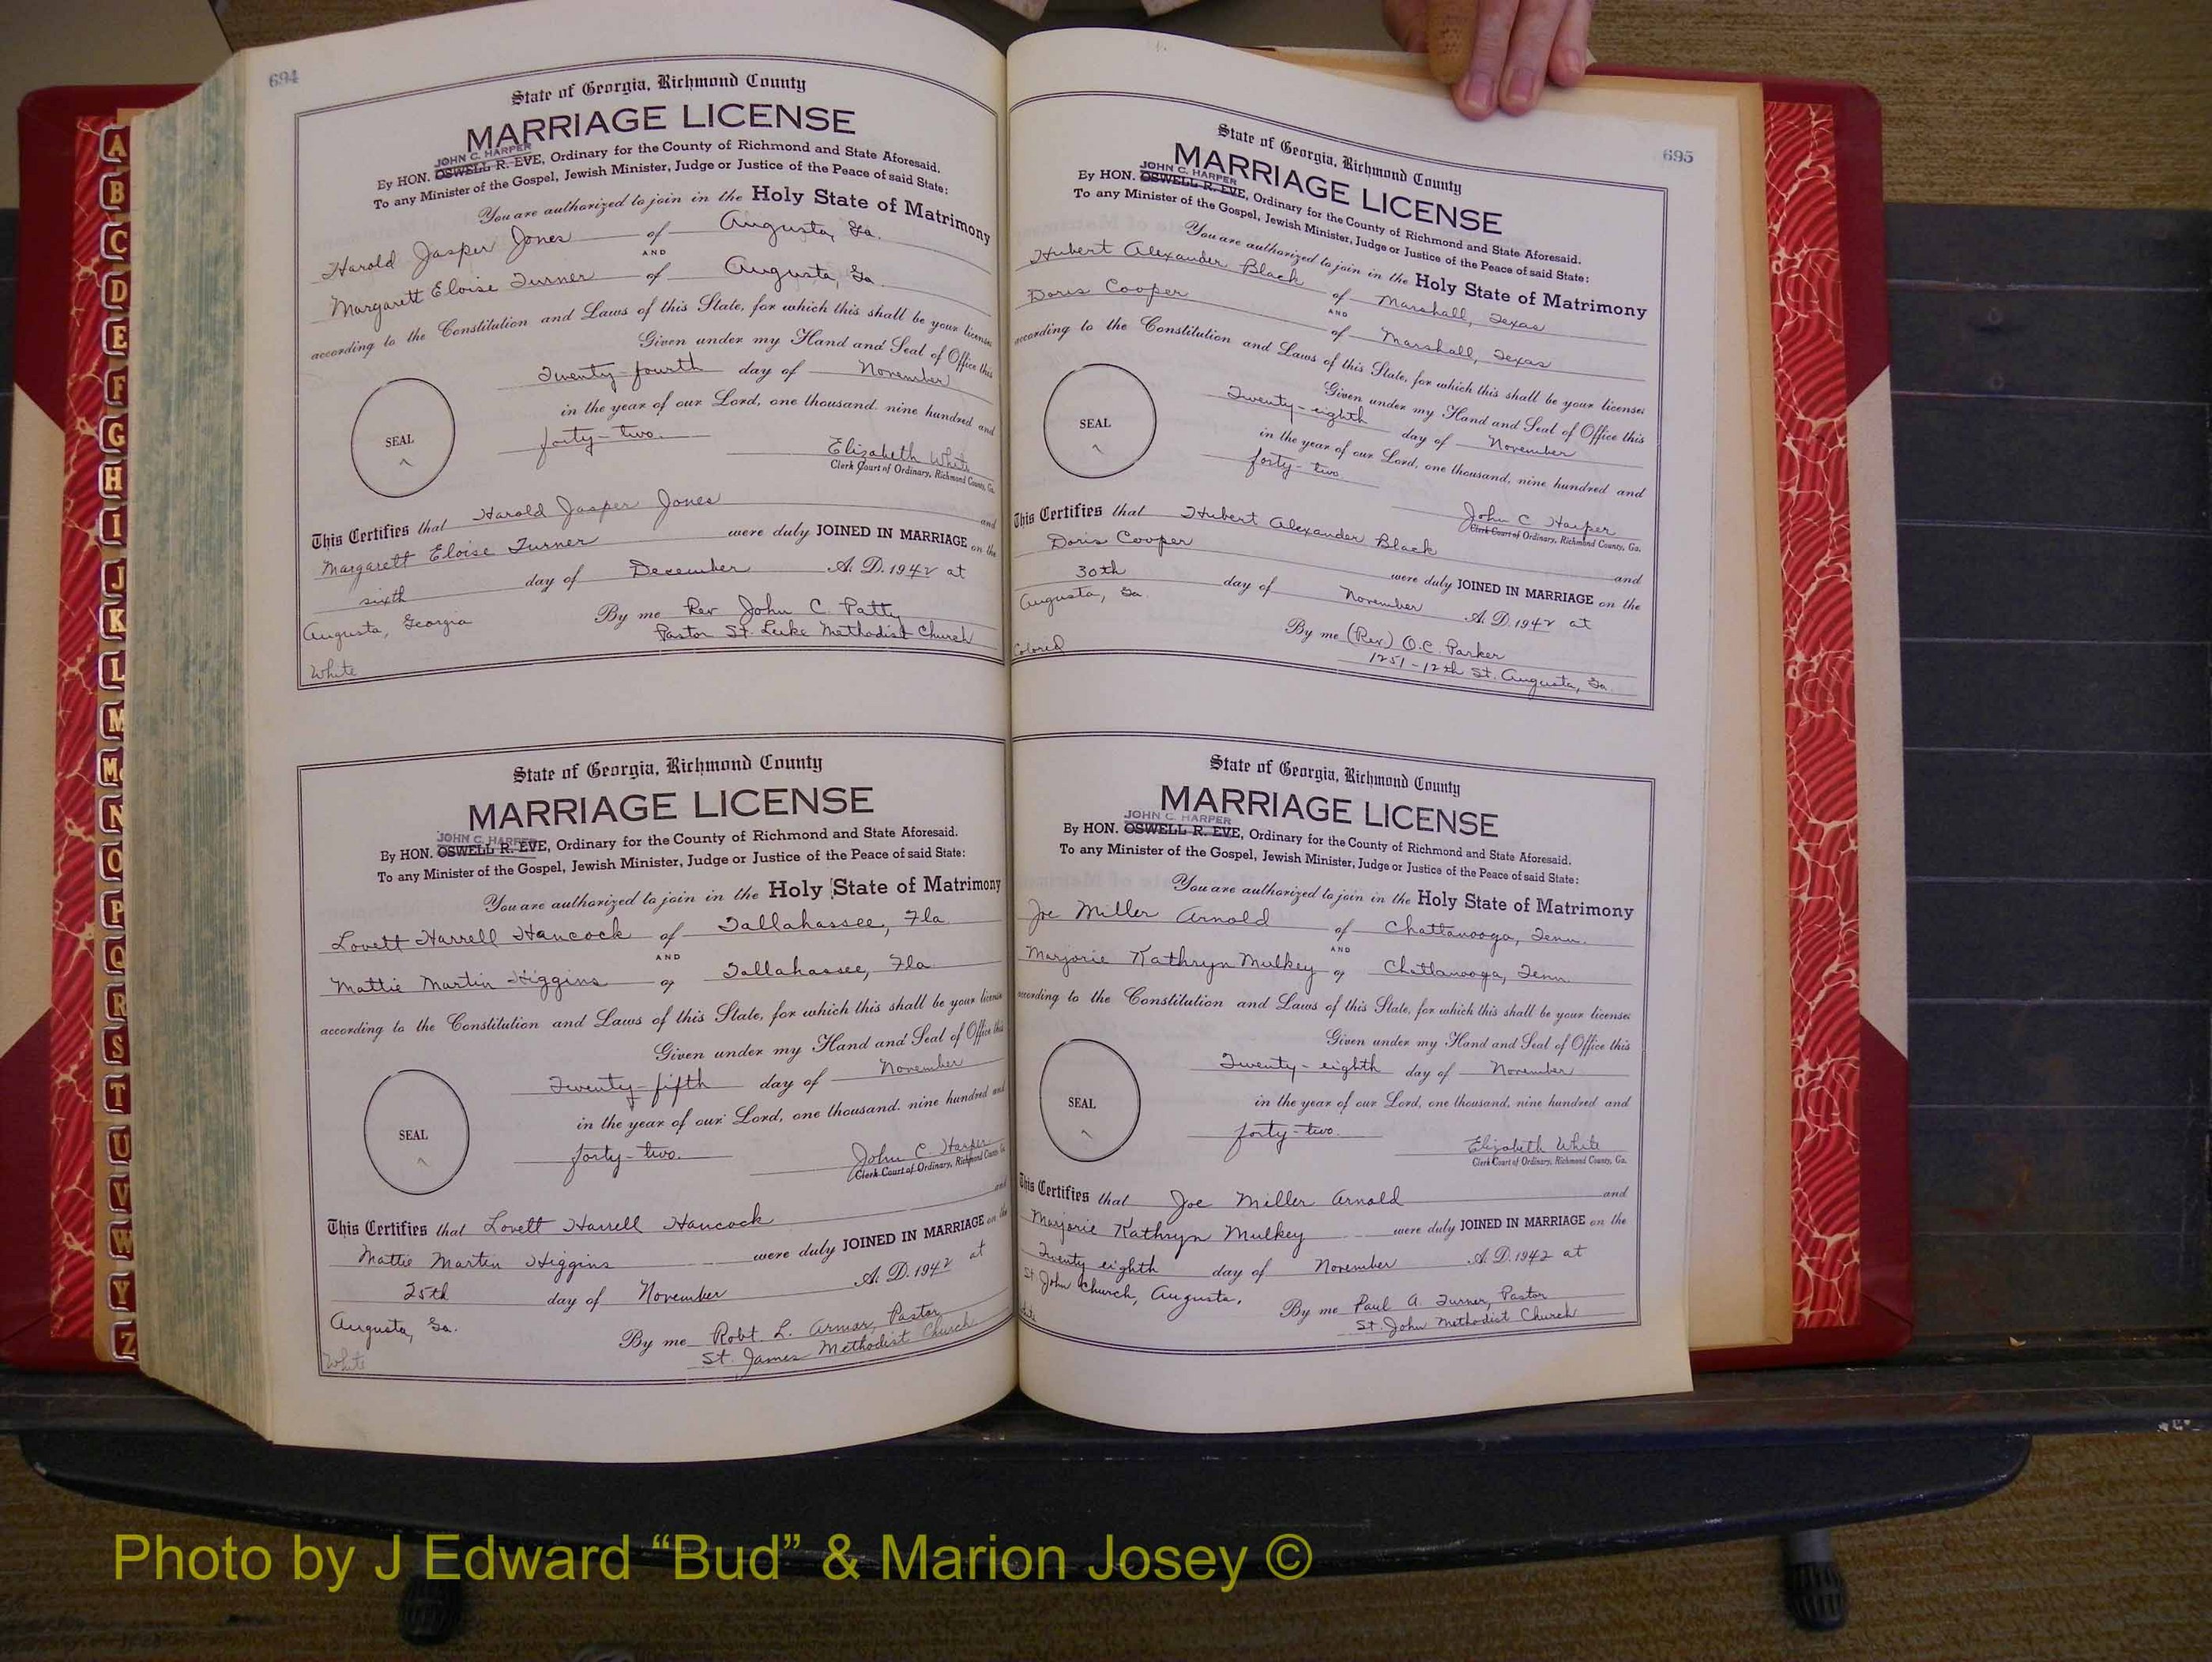 694
State of Georgia, Richmond County
MARRIAGE LICENSE
JOHN C. HARPER
By HON. OSWELL R. EVE, Ordinary for the County of Richmond and State Aforesaid.
To any Minister of the Gospel, Jewish Minister, Judge or Justice of the Peace of said State:
You are authorized to join in the Holy State of Matrimony
Harold Jasper Jones of Augusta, Ga.
AND
Margarett Eloise Turner of Augusta, Ga.
according to the Constitution and Laws of this State, for which this shall be your license
Given under my Hand and Seal of Office this
Twenty-fourth day of November
in the year of our Lord, one thousand nine hundred and
forty-two.
SEAL
Elizabeth White
Clerk Court of Ordinary, Richmond County, Ga.
This Certifies that Harold Jasper Jones and
Margarett Eloise Turner were duly JOINED IN MARRIAGE on the
sixth day of December A. D. 1942 at
Augusta, Georgia By me Rev John C. Patty
Pastor St. Luke Methodist Church
White
State of Georgia, Richmond County
MARRIAGE LICENSE
JOHN C. HARPER
By HON. OSWELL R. EVE, Ordinary for the County of Richmond and State Aforesaid.
To any Minister of the Gospel, Jewish Minister, Judge or Justice of the Peace of said State:
You are authorized to join in the Holy State of Matrimony
Lovett Harrell Hancock of Tallahassee, Fla.
AND
Mattie Martin Higgins of Tallahassee, Fla.
according to the Constitution and Laws of this State, for which this shall be your license
Given under my Hand and Seal of Office this
Twenty-fifth day of November
in the year of our Lord, one thousand. nine hundred and
forty-two.
SEAL
John C. Harper
Clerk Court of Ordinary, Richmond County, Ga.
This Certifies that Lovett Harrell Hancock and
Mattie Martin Higgins were duly JOINED IN MARRIAGE on the
25th day of November A. D. 1942 at
Augusta, Ga. By me Robt. L. Armor, Pastor
St. James Methodist Church
White
695
State of Georgia, Richmond County
MARRIAGE LICENSE
JOHN C. HARPER
By HON. OSWELL R. EVE, Ordinary for the County of Richmond and State Aforesaid.
To any Minister of the Gospel, Jewish Minister, Judge or Justice of the Peace of said State:
You are authorized to join in the Holy State of Matrimony
Hubert Alexander Black of Marshall, Texas
AND
Doris Cooper of Marshall, Texas
according to the Constitution and Laws of this State, for which this shall be your license:
Given under my Hand and Seal of Office this
Twenty-eighth day of November
in the year of our Lord, one thousand, nine hundred and
forty-two
SEAL
John C Harper
Clerk Court of Ordinary, Richmond County, Ga.
This Certifies that Hubert Alexander Black and
Doris Cooper were duly JOINED IN MARRIAGE on the
30th day of November A. D. 1942 at
Augusta, Ga. By me (Rev.) O.C. Parker
1251-12th St. Augusta, Ga.
Colored
State of Georgia, Richmond County
MARRIAGE LICENSE
JOHN C. HARPER
By HON. OSWELL R. EVE, Ordinary for the County of Richmond and State Aforesaid.
To any Minister of the Gospel, Jewish Minister, Judge or Justice of the Peace of said State:
You are authorized to join in the Holy State of Matrimony
Joe Miller Arnold of Chattanooga, Tenn.
AND
Marjorie Kathryn Mulkey of Chattanooga, Tenn.
according to the Constitution and Laws of this State, for which this shall be your license:
Given under my Hand and Seal of Office this
Twenty-eighth day of November
in the year of our Lord, one thousand, nine hundred and
forty-two.
SEAL
Elizabeth White
Clerk Court of Ordinary, Richmond County, Ga.
This Certifies that Joe Miller Arnold and
Marjorie Kathryn Mulkey were duly JOINED IN MARRIAGE on the
Twenty eighth day of November A. D. 1942 at
St John Church, Augusta. By me Paul A. Turner, Pastor
St. John Methodist Church
A
B
C
D
E
F
G
H
I
J
K
L
M
Mc
N
O
P
Q
R
S
T
U
V
W
Y
Z
Photo by J Edward “Bud” & Marion Josey ©